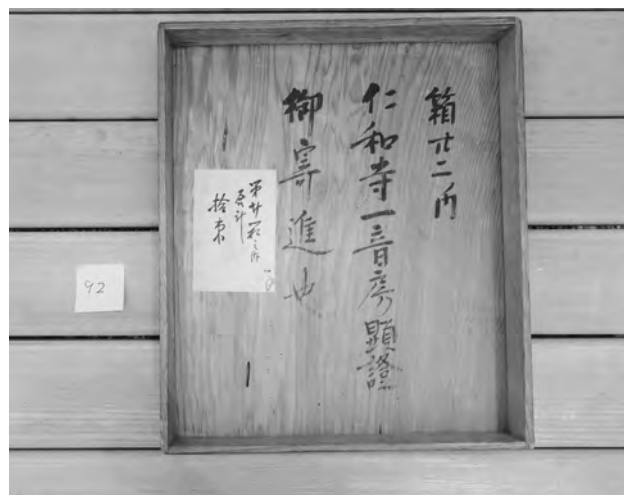 箱廿二内
仁和寺一音房顕證
御寄進也
第廿一箱之内
合計
92